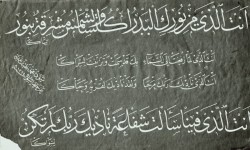 انت الذي من نورك البدر اكتسى والشمس مشرقة بنور
بهاكا
انت الذي لما رفعت الى السما بك قد سمت وتزينت لسراكا
انت الذي ناداك ربك مرحبا ولقد دعاك لقربه وحباكا
انت الذي فينا سالت شفاعة ناداك ربك لم تكن
لسواكا